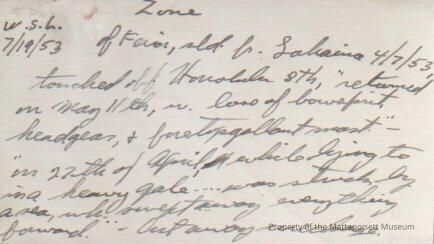 Zone
W.S.L.
7/19/53
of Fair, sld. fr. Lahaina 4/7/53,
touched off Honolulu 8th, "returned
in May 11th, w. loss of bowsprit
headgear, & foretopgallant mast." -
"on 27th of April, while lying to
in a heavy gale.... was struck by
a sea, wh. swept away everything
forward." - but away
Property of the Mattapoisett Museum